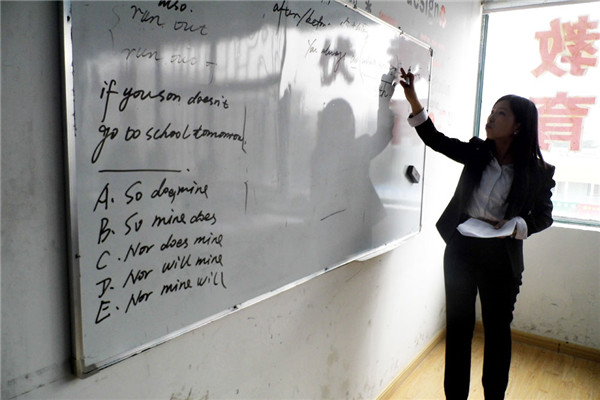 run out
run out
if your son doesn't
go to school tomorrow,
A. So does mine
B. So mine does
C. Nor does mine
D. Nor will mine
E. Nor mine will
after/before
You always
教
育